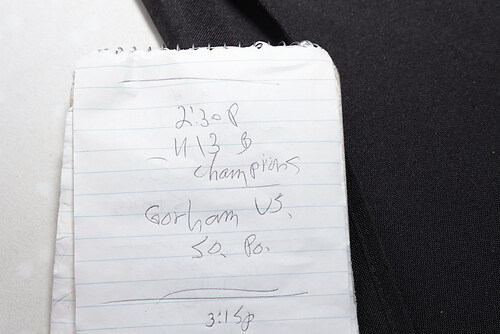 2:30P
U13 B
Champions
Gorham VS.
So. Po.
3:15p